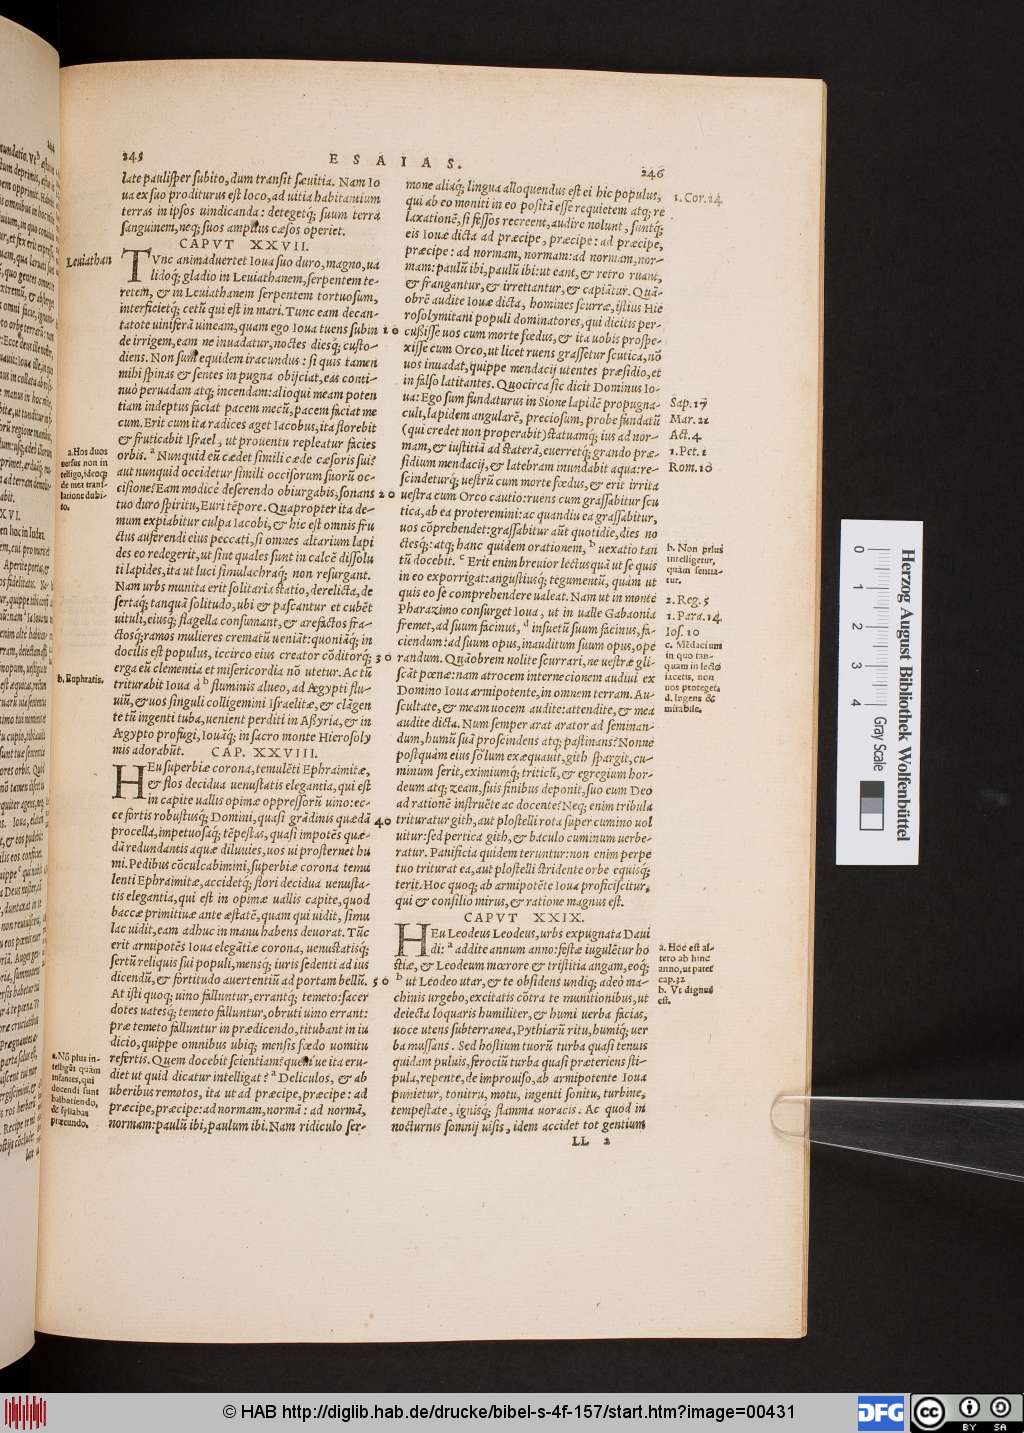 245
ESAIAS.
246
late paulisper subito, dum transit sævitia. Nam Io
ua ex suo proditurus est loco, ad uitia habitantium
terras in ipsos uindicanda: detegetq́; suum terra
sanguinem, neq; suos amplius cæsos operiet.
CAPVT XXVII.
Leuiathan
TVnc animaduertet Ioua suo duro, magno, ua
lidoq́; gladio in Leuiathanem, serpentem te-
retem, & in Leuiathanem serpentem tortuosum,
interficietq́; cetū qui est in mari. Tunc eam decan-
tatote uiniferā uineam, quam ego Ioua tuens subin
10
de irrigem, eam ne inuadatur, noctes diesq́; custo-
diens. Non sum equidem iracundus: si quis tamen
mihi spinas & sentes in pugna obijciat, eas conti-
nuò peruadam atq; incendam: alioqui meam poten
tiam indeptus faciat pacem mecū, pacem faciat me
cum. Erit cum ita radices aget Iacobus, ita florebit
& fruticabit Israel, ut prouentu repleatur facies
orbis. a Nunquid eū cædet simili cæde cæsoris sui?
aut nunquid occidetur simili occisorum suorū oc-
cisione? Eam modicè deserendo obiurgabis, sonans
20
tuo duro spiritu, Euri tēpore. Quapropter ita de-
mum expiabitur culpa Iacobi, & hic est omnis fru
ctus auferendi eius peccati, si omnes altarium lapi
des eo redegerit, ut sint quales sunt in calcē dissolu
ti lapides, ita ut luci simulachraq́; non resurgant.
Nam urbs munita erit solitaria statio, derelicta, de
sertaq́; tanquā solitudo, ubi & pascantur et cubēt
uituli, eiusq́; flagella consumant, & arefactos fra-
ctosq́; ramos mulieres crematū ueniāt: quoniāq́; in
docilis est populus, iccirco eius creator cōditorq́;
30
erga eū clementia et misericordia nō utetur. Ac tū
triturabit Ioua à b fluminis alueo, ad Ægypti flu-
uiū, & uos singuli colligemini Israelitæ, & clāgen
te tū ingenti tuba, uenient perditi in Assyria, & in
Ægypto profugi, Iouāq́; in sacro monte Hierosoly
mis adorabūt.
CAP. XXVIII.
HEu superbiæ corona, temulēti Ephraimitæ,
& flos decidua uenustatis elegantia, qui est
in capite uallis opimæ oppressorū uino: ec-
ce fortis robustusq́; Domini, quasi grādinis quædā
40
procella, impetuosaq́; tēpestas, quasi impotēs quæ-
dā redundantis aquæ diluuies, uos ui prosternet hu
mi. Pedibus cōculcabimini, superbiæ corona temu
lenti Ephraimitæ, accidetq́; flori decidua uenusta-
tis elegantia, qui est in opimæ uallis capite, quod
baccæ primitiuæ ante æstatē, quam qui uidit, simu
lac uidit, eam adhuc in manu habens deuorat. Tūc
erit armipotēs Ioua elegātiæ corona, uenustatisq́;
sertū reliquis sui populi, mensq́; iuris sedenti ad ius
dicendū, & fortitudo auertentiū ad portam bellū.
50
At isti quoq; uino falluntur, errantq́; temeto: sacer
dotes uatesq́; temeto falluntur, obruti uino errant:
præ temeto falluntur in prædicendo, titubant in iu
dicio, quippe omnibus ubiq; mensis fœdo uomitu
refertis. Quem docebit scientiam? quem ue ita eru-
diet ut quid dicatur intelligat? a Deliculos, & ab
uberibus remotos, ita ut ad præcipe, præcipe: ad
præcipe, præcipe: ad normam, normā: ad normā,
normam: paulū ibi, paulum ibi. Nam ridiculo ser-
a. Hos duos
uersus non in
telligo, ideoq́;
de mea trans-
latione dubi-
to.
b. Euphratis.
a. Nō plus in-
telligūt quàm
infantes, qui
docendi sunt
balbutiendo,
& syllabas
præeundo.
mone aliaq́; lingua alloquendus est ei hic populus,
qui ab eo moniti in eo positā esse requietem atq; re
laxationē, si fessos recreent, audire nolunt, suntq́;
eis Iouæ dicta ad præcipe, præcipe: ad præcipe,
præcipe: ad normam, normam: ad normam, nor-
mam: paulū ibi, paulū ibi: ut eant, & retro ruant,
& frangantur, & irretiantur, & capiātur. Quā-
obrē audite Iouæ dicta, homines scurræ, istius Hie
rosolymitani populi dominatores, qui dicitis per-
cussisse uos cum morte fœdus, & ita uobis prospe-
xisse cum Orco, ut licet ruens grassetur scutica, nō
uos inuadat, quippe mendacij utentes præsidio, et
in falso latitantes. Quocirca sic dicit Dominus Io-
ua: Ego sum fundaturus in Sione lapidē propugna-
culi, lapidem angularē, preciosum, probe fundatū
(qui credet non properabit) statuamq́; ius ad nor-
mam, & iustitiā ad staterā, euerretq́; grando præ-
sidium mendacij, & latebram inundabit aqua: re-
scindeturq́; uestrū cum morte fœdus, & erit irrita
uestra cum Orco cautio: ruens cum grassabitur scu
tica, ab ea proteremini: ac quandiu ea grassabitur,
uos cōprehendet: grassabitur aūt quotidie, dies no
ctesq́;: atq; hanc quidem orationem, b uexatio tan
tū docebit. c Erit enim breuior lectus quā ut se quis
in eo exporrigat: angustiusq́; tegumentū, quàm ut
quis eo se comprehendere ualeat. Nam ut in monte
Pharazimo consurget Ioua, ut in ualle Gabaonia
fremet, ad suum facinus, d insuetū suum facinus, fa-
ciendum: ad suum opus, inauditum suum opus, ope
randum. Quāobrem nolite scurrari, ne uestræ gli-
scāt pœnæ: nam atrocem internecionem audiui ex
Domino Ioua armipotente, in omnem terram. Au-
scultate, & meam uocem audite: attendite, & mea
audite dicta. Num semper arat arator ad seminan-
dum, humū suā proscindens atq; pastinans? Nonne
postquàm eius solum exæquauit, gith spargit, cu-
minum serit, eximiumq́; triticū, & egregium hor-
deum atq; zeam, suis finibus deponit, suo cum Deo
ad rationē instruēte ac docente? Neq; enim tribula
trituratur gith, aut plostelli rota super cumino uol
uitur: sed pertica gith, & baculo cuminum uerbe-
ratur. Panificia quidem teruntur: non enim perpe
tuo triturat ea, aut plostelli stridente orbe equisq́;
terit. Hoc quoq; ab armipotēte Ioua proficiscitur,
qui & consilio mirus, & ratione magnus est.
CAPVT XXIX.
HEu Leodeus Leodeus, urbs expugnata Daui
di: a addite annum anno: festæ iugulētur ho
stiæ, & Leodeum mœrore & tristitia angam, eoq́;
b ut Leodeo utar, & te obsidens undiq; adeò ma-
chinis urgebo, excitatis cōtra te munitionibus, ut
deiecta loquaris humiliter, & humi uerba facias,
uoce utens subterranea, Pythiarū ritu, humiq́; uer
ba mussans. Sed hostium tuorū turba quasi tenuis
quidam puluis, ferociū turba quasi præteriens sti-
pula, repente, de improuiso, ab armipotente Ioua
punietur, tonitru, motu, ingenti sonitu, turbine,
tempestate, ignisq́; flamma uoracis. Ac quod in
nocturnis somnij uisis, idem accidet tot gentium
LL 2
1. Cor. 14
Sap. 17
Mar. 21
Act. 4
1. Pet. 1
Rom. 10
b. Non prius
intelligetur,
quàm sentia-
tur.
2. Reg. 5
1. Para. 14
Ios. 10
c. Mēdacium
in quo tan-
quam in lecto
iacetis, non
uos proteget.
d. Ingens &
mirabile.
a. Hoc est al-
tero ab hinc
anno, ut patet
cap. 32
b. Vt dignus
est.
0 1 2 3 4
Herzog August Bibliothek Wolfenbüttel
Gray Scale
© HAB http://diglib.hab.de/drucke/bibel-s-4f-157/start.htm?image=00431
DFG
cc
BY SA